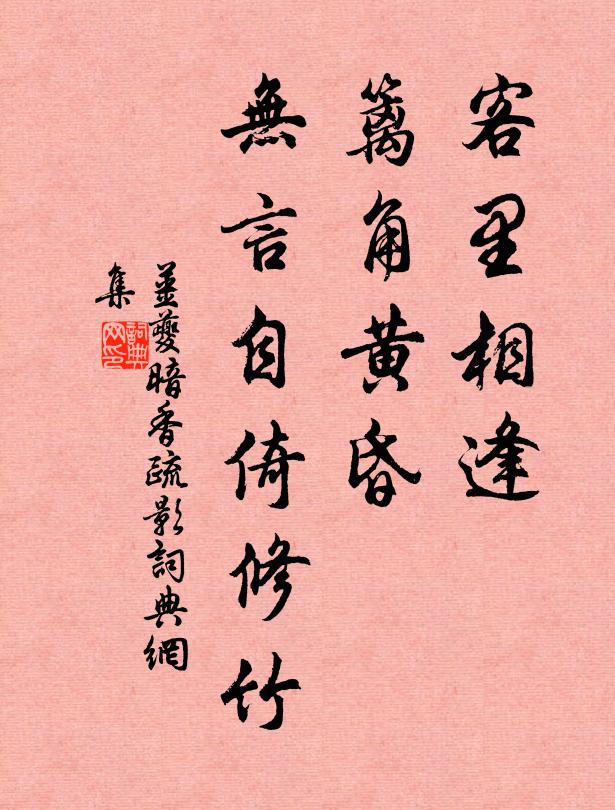 客里相逢
篱角黄昏
無言自倚修竹
姜夔暗香疏影詞典網
集
詞典网印